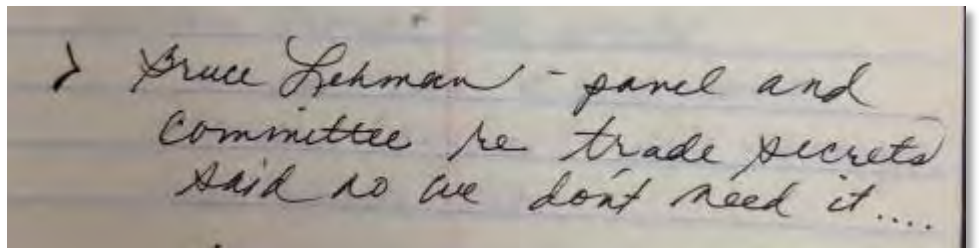 > Bruce Lehman - panel and
committee re trade secrets
said no we don't need it....